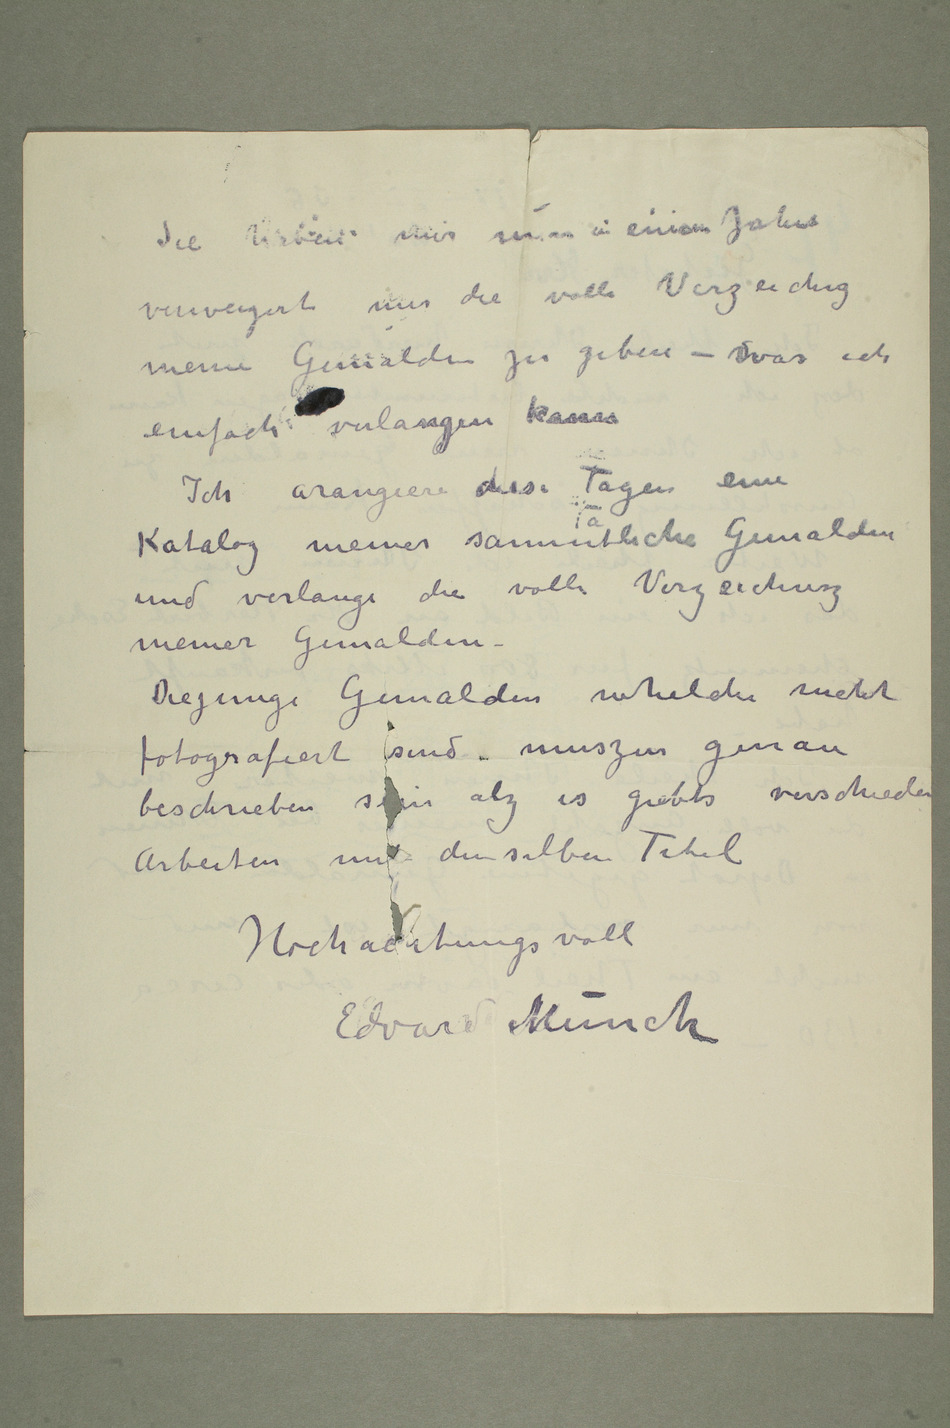 Sie haben mir nun in einem Jahre
verweigert mir die volle Verzeichng
meine Gemälden zu geben – was ich
einfach verlangen kann
Ich arangiere diese Tagen eine
Ta
Katalog meiner sammtliche Gemalden
und verlange die volle Verzeichnisz
meiner Gemalden –
Diejenige Gemalden whelche nicht
fotografiert sind . muszen genau
beschrieben sein alz es giebts verschieden
Arbeiten mit denselben Titel
Hochachtungsvoll
Edvard Munch